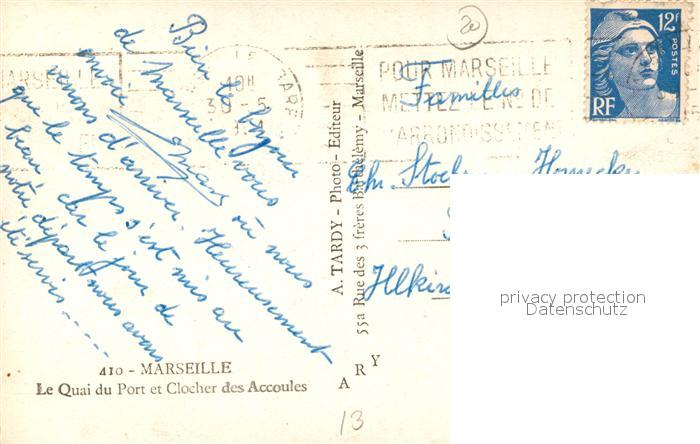 Bien le bonjour
de Marseille où nous
venons d'arriver. Heureusement
que le temps s'est mis au
beau car le jour de
notre départ nous avons
été servis.....
410 - MARSEILLE
Le Quai du Port et Clocher des Accoules
A. TARDY - Photo - Editeur
55a Rue des 3 frères Barthélémy - Marseille
A R Y
13
20
MARSEILLE
10H
30-5
GARE
POUR MARSEILLE
METTEZ LE No DE
L'ARRONDISSEMENT
12F
POSTES
RF
Familles
Chr.
Illkirc
privacy protection
Datenschutz